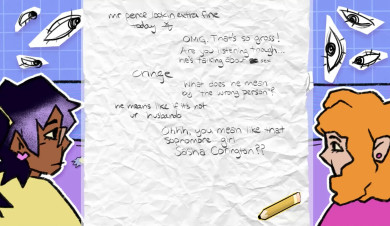 mr pence lookin extra fine
today
OMG. That's so gross!
Are you listening though...
he's talking about sex
Cringe
What does he mean
by "the wrong person"?
he means like if its not
ur husband
Ohhh, you mean like that
sophomore girl
Sasha Corington??